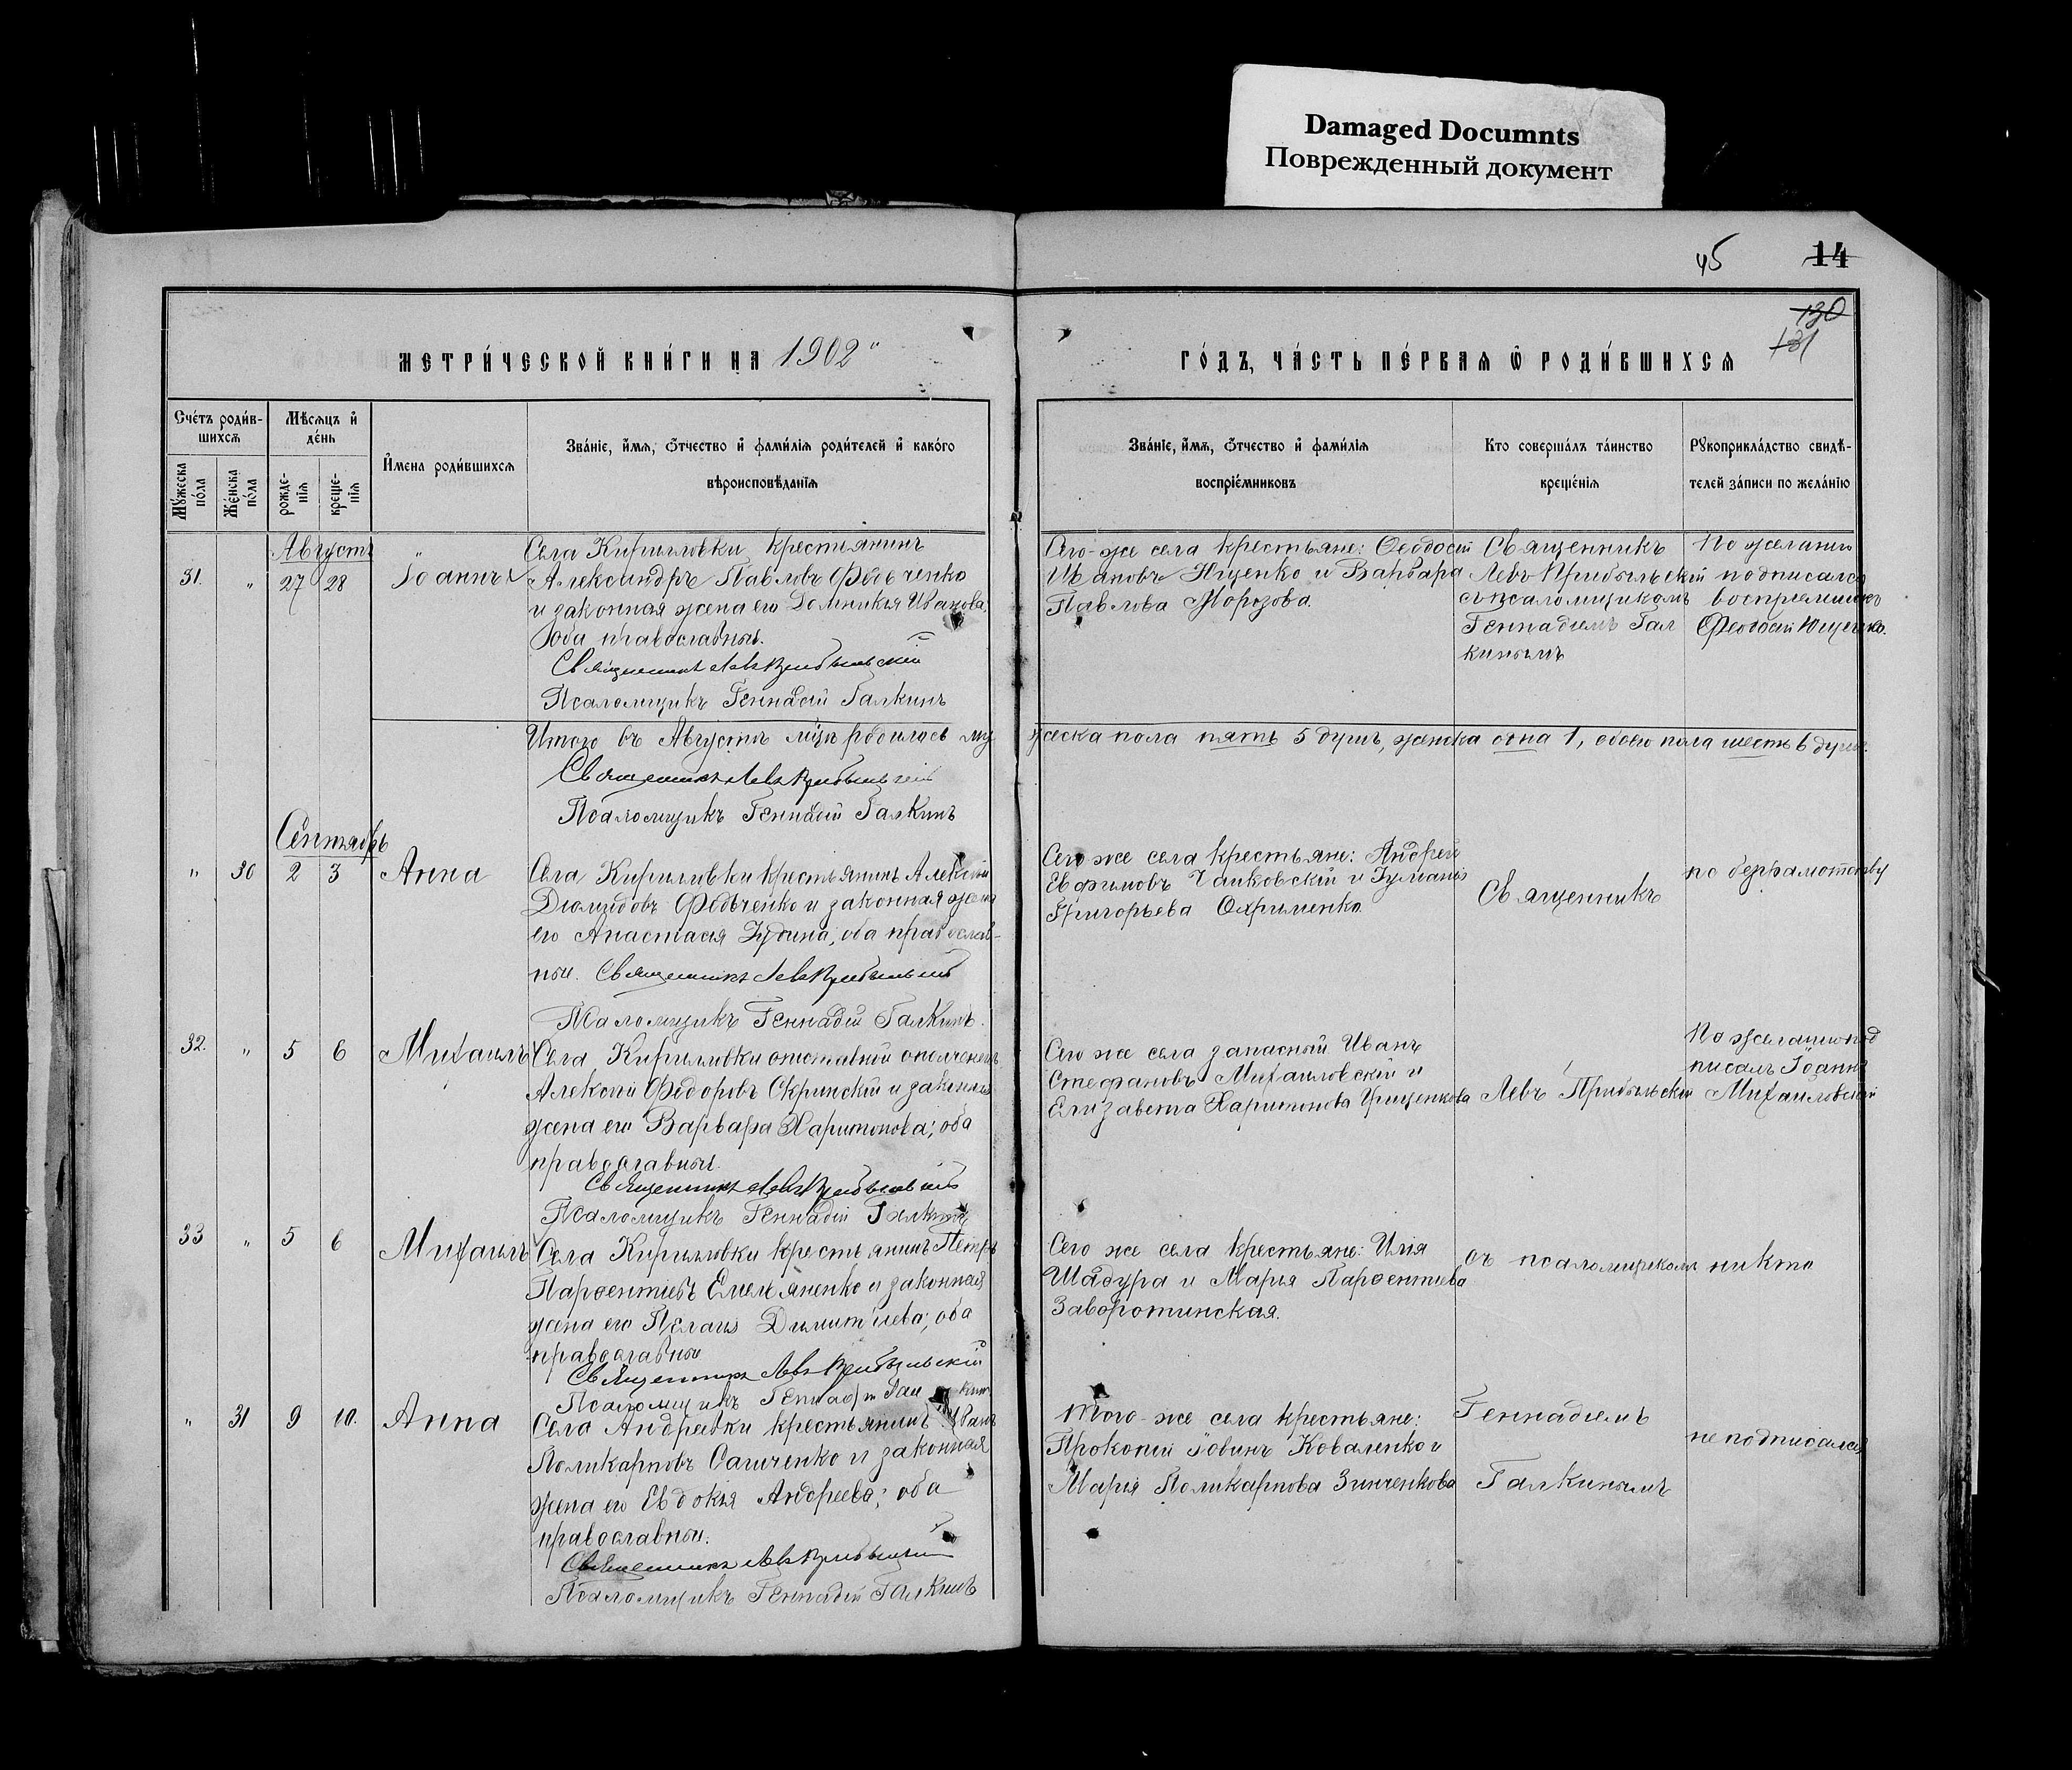 Damaged Documnts
Поврежденный документ
45 14
130
131
метри́ческой кни́ги на 1902
го́дъ, ча́сть пе́рвая ѿ роди́вшихся
Сче́тъ роди́в-
шихся
Мѣ́сяцъ и҆
де́нь
Му́жеска по́ла
Же́нска по́ла
рожде-
нїя
креще-
нїя
И҆мена роди́вшихся
Зва́нїе, и҆́мя, ѻ҆́тчество и҆ фами́лїя роди́телей и҆ како́го
вѣроисповѣ́данїя
Зва́нїе, и҆́мя, ѻ҆́тчество и҆ фами́лїя
воспрїе́мниковъ
Кто соверша́лъ та́инство
креще́нїя
Рꙋкоприкла́дство свидѣ́-
телей за́писи по жела́нїю
Августъ
31. " 27 28 Іоаннъ
Села Кирилловки крестьянинъ
Александръ Павловъ Федченко
и законная жена его Домникія Иванова,
оба православные.
Священникъ Левъ Прибыльскій
Псаломщикъ Геннадій Галкинъ
Сего-же села крестьяне: Ѳеодосій
Ивановъ Ющенко и Варвара
Павлова Морозова.
Священникъ
Левъ Прибыльскій
съ псаломщикомъ
Геннадіемъ Гал
кинымъ
По желанію
подписался
воспріемникъ
Феодосій Ющенко.
Итого въ Августѣ мцѣ родилось му
жеска пола пять 5 душъ, женска одна 1, обоего пола шесть 6 душъ.
Священникъ Левъ Прибыльскій
Псаломщикъ Геннадій Галкинъ
Сентябрь
" 30 2 3 Анна
Села Кирилловки крестьянинъ Алексій
Федченко и законная жена
его Анастасія Іудина, оба православ-
ные. Священникъ Левъ Прибыльскій
Псаломщикъ Геннадій Галкинъ.
Сего же села крестьяне: Андрей
Евфимовъ Чайковскій и Іуліанія
Григорьева Охрименко
Священникъ
по безграмотству
32. " 5 6 Михаилъ
Села Кирилловки отставной ополченецъ
Алексій Федоровъ Скринскій и законная
жена его Варвара Харитонова; оба
православные.
Священникъ Левъ Прибыльскій
Псаломщикъ Геннадій Галкинъ
Сего же села запасный Иванъ
Стефановъ Михайловскій и
Елизавета Харитонова
Левъ Прибыльскій
По желанію под
писалъ Іоаннъ
Михайловскій
33 " 5 6 Михаилъ
Села Кирилловки крестьянинъ Петръ
Парѳентіевъ Емельяненко и законная
жена его Пелагія Димитріева; оба
православные
Священникъ Левъ Прибыльскій
Псаломщикъ Геннадій Галкинъ
Сего же села крестьяне: Илія
Шадура и Марія Парѳентіева
Заворотинская.
съ псаломщикомъ
никто
" 31 9 10. Анна
Села Андреевки крестьянинъ Иванъ
Поликарповъ Савченко и законная
жена его Евдокія Андреева; оба
православные.
Священникъ Левъ Прибыльскій
Псаломщикъ Геннадій Галкинъ
Того-же села крестьяне:
Прокопій Іовинъ Коваленко и
Марія Поликарпова Зинченкова
Геннадіемъ
Галкинымъ
не подписался